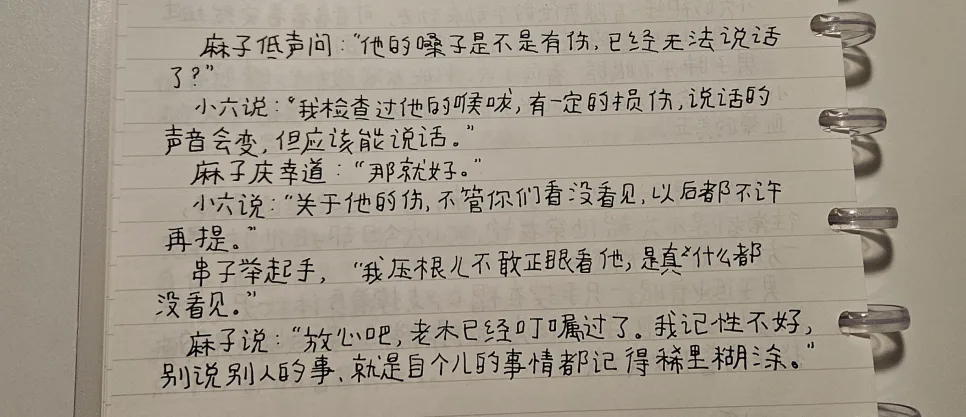 麻子低声问："他的嗓子是不是有伤，已经无法说话
了？"
小六说："我检查过他的喉咙，有一定的损伤，说话的
声音会变，但应该能说话。"
麻子庆幸道："那就好。"
小六说："关于他的伤，不管你们看没看见，以后都不许
再提。"
串子举起手，"我压根儿不敢正眼看他，是真什么都
没看见。"
麻子说："放心吧，老木已经叮嘱过了。我记性不好，
别说别人的事、就是自个儿的事情都记得稀里糊涂。"